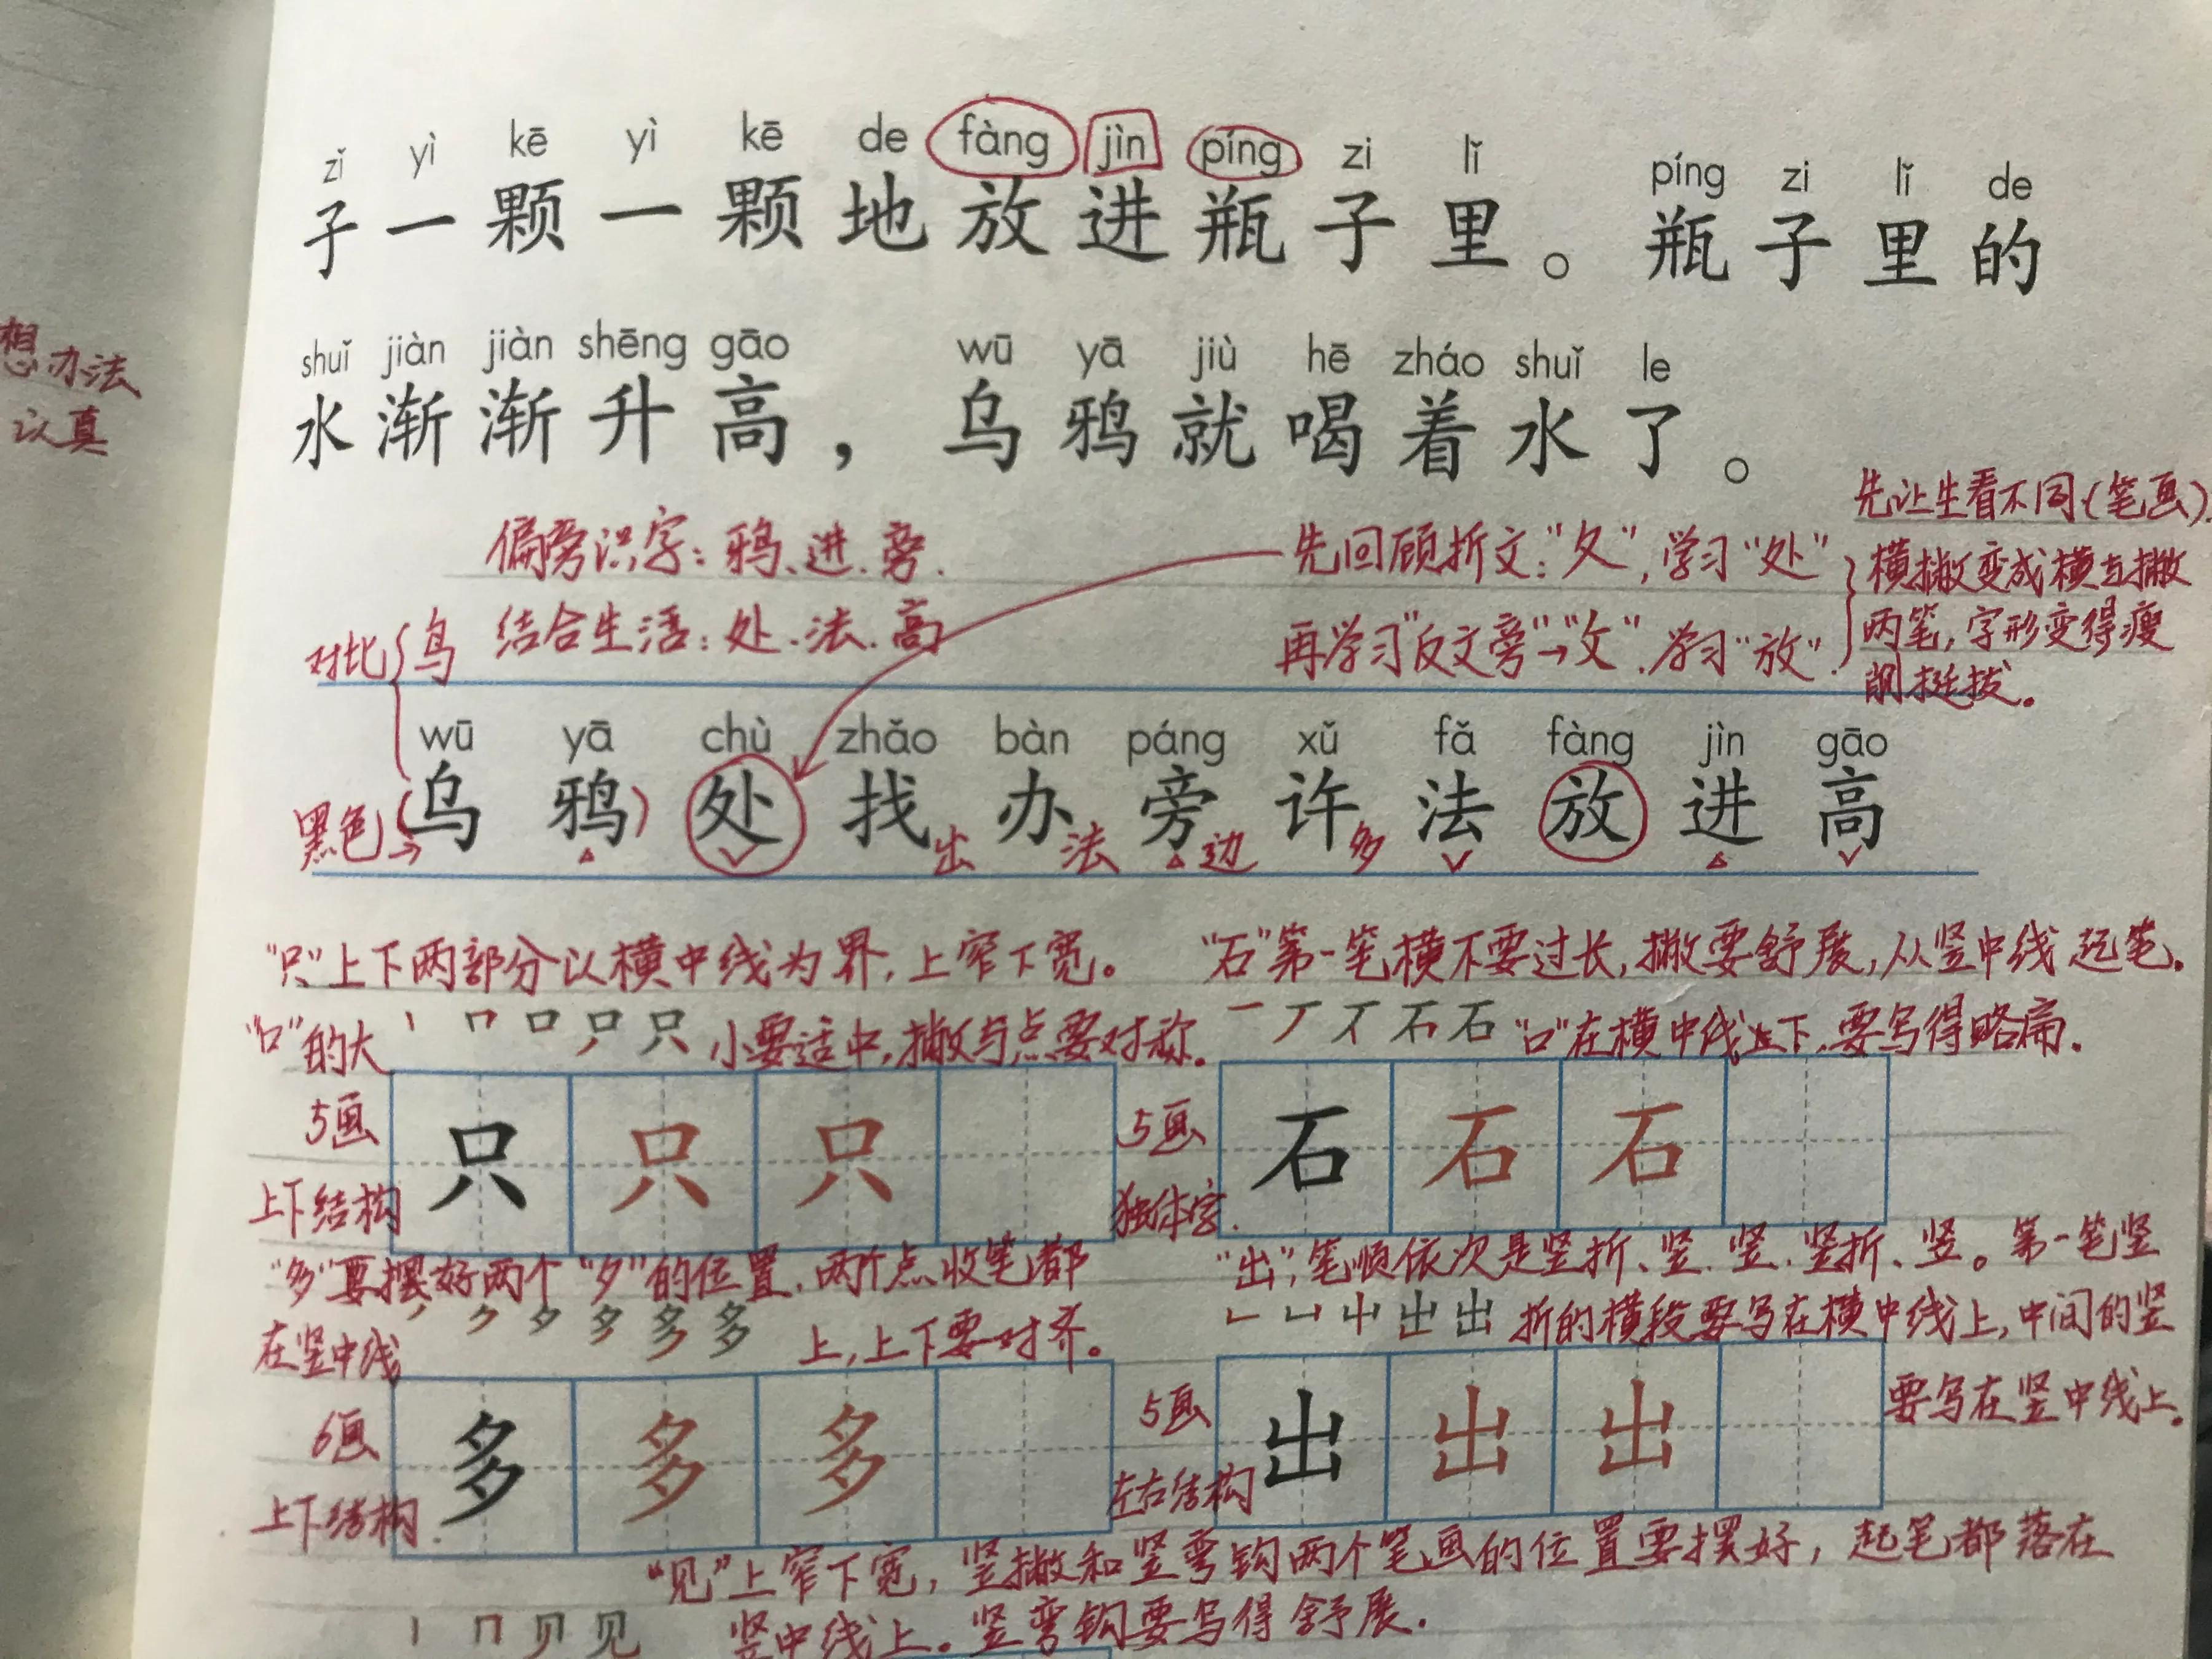 zǐ yì kē yì kē de fàng jìn píng zi lǐ píng zi lǐ de
子一颗一颗地放进瓶子里。瓶子里的
shuǐ jiàn jiàn shēng gāo wū yā jiù hē zháo shuǐ le
水渐渐升高，乌鸦就喝着水了。
想办法
认真
偏旁识字：鸦、进、旁.
结合生活：处、法、高
先回顾折文："夂"，学习"处"
再学习"反文旁"→"攵"，学习"放"
先让生看不同(笔画)
横撇变成横与撇
两笔，字形变得瘦
削挺拔。
对比{鸟
wū yā chù zhǎo bàn páng xǔ fǎ fàng jìn gāo
黑色→(乌鸦)处找出办法旁边许多法放进高
"只"上下两部分以横中线为界，上窄下宽。
"口"的大小要适中，撇与点要对称。
丨 ㄇ 口 尸 只
5画
上下结构
只 只 只
"石"第一笔横不要过长，撇要舒展，从竖中线起笔。
一 丆 丆 石 石 "口"在横中线上下，要写得略扁。
5画
独体字.
石 石 石
"多"要摆好两个"夕"的位置，两个点收笔都
在竖中线上，上下要对齐。
6画
上下结构
多 多 多
"出"，笔顺依次是竖折、竖、竖、竖折、竖。第一笔竖
折的横段要写在横中线上，中间的竖
要写在竖中线上。
5画
左右结构
出 出 出
"见"上窄下宽，竖撇和竖弯钩两个笔画的位置要摆好，起笔都落在
丨 冂 贝 见 竖中线上。竖弯钩要写得舒展.